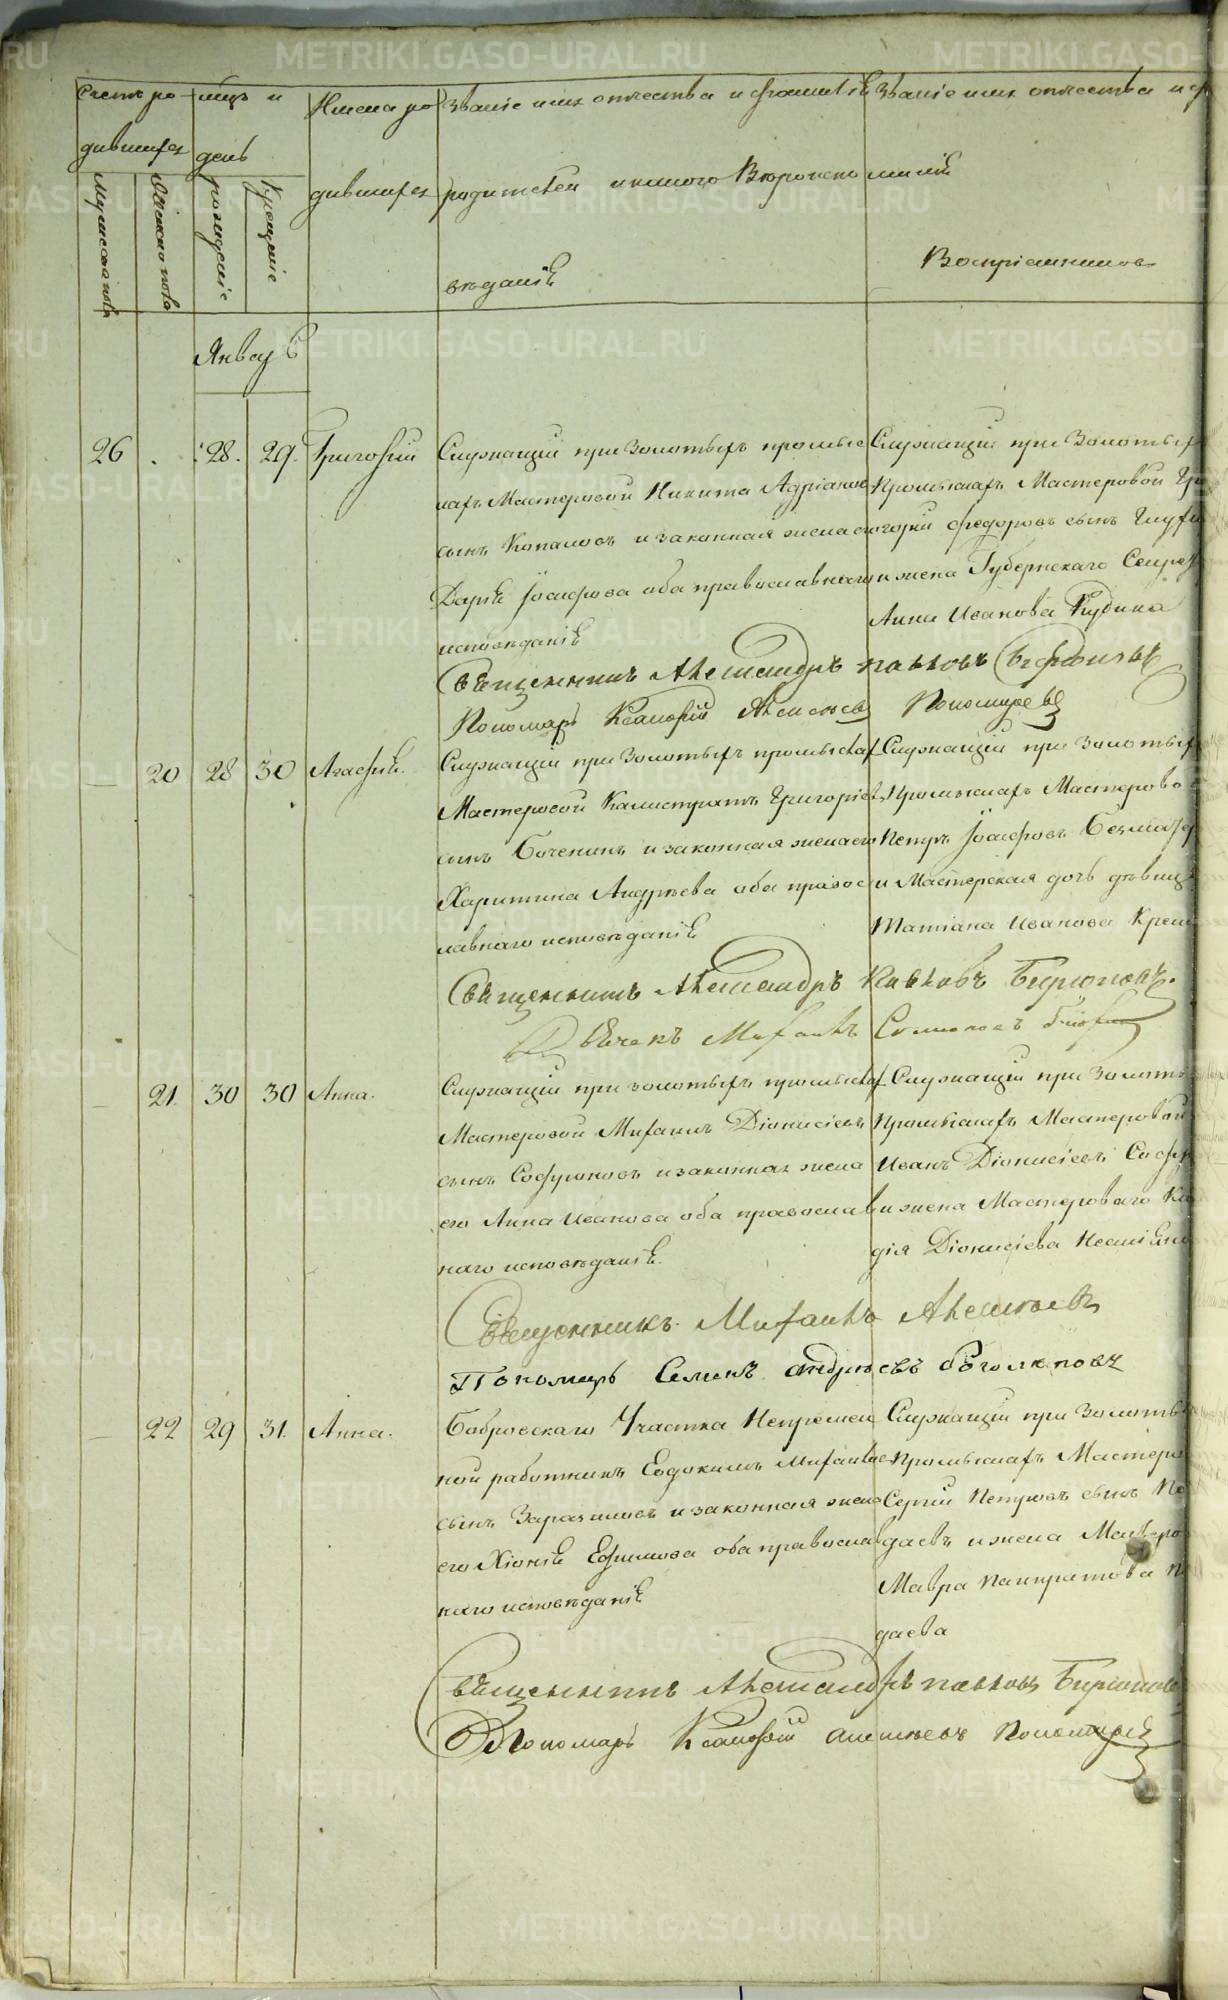 Счетъ ро-
дившихся
мѣцъ и
день
Мужеска пола
Женска пола
рожденіе
Крещеніе
Имена ро
дившихся
Званіе имя отчества и фамиліѣ
родителей и какого Вѣроиспо
вѣданіѣ
Званіе имя отчества и ф
миліѣ
Воспріемниковъ
Январь
26 . 28. 29. Григорій
Служащій при Золотыхъ промыс
лахъ Мастеровой Никита Адріановъ
сынъ Копаловъ и законная жена его
Дарьѣ Іосифова оба православнаго
исповѣданіѣ
Служащій при Золотых
Промыслахъ Мастеровой Гри
горій Федоровъ сынъ Глух
и жена Губернскаго Секрет
Анна Иванова Рудина
Священникъ Александръ Павловъ Бирюковъ
Пономарь Ксанфій Алексѣевъ Пономаревъ
— 20 28 30 Агафьѣ.
Служащій при Золотыхъ промыслах
Мастеровой Калистратъ Григоріевъ
сынъ Боченинъ и законная жена его
Харитина Андрѣева оба правос
лавнаго исповѣданіѣ
Служащій при Золотых
Промыслахъ Мастерово
Петръ Іосифовъ
и Мастерская дочь дѣвиц
Татіана Иванова
Священникъ Александръ Павловъ Бирюковъ.
Дьячекъ Михаилъ
— 21. 30 30 Анна.
Служащій при золотыхъ промыслах
Мастеровой Михаилъ Діонисіевъ
сынъ Софроновъ и законная жена
его Анна Иванова оба православ
наго исповѣданіѣ.
Служащій при Золоты
Промыслахъ Мастеровой
Иванъ Діонисіевъ Софр
и жена Мастероваго
дія Діонисіева
Священникъ Михаилъ Алексѣевъ
Пономарь Семенъ Андрѣевъ Боголѣповъ
— 22 29 31. Анна.
Бобровскаго Участка Непремен
ной работникъ Евдокимъ Михаиловъ
сынъ и законная жена
его Хіоніѣ Ефимова оба православ
наго исповѣданіѣ
Служащій при Золоты
Промыслахъ Мастеро
Сергій Петровъ сынъ По
даевъ и жена Мастеро
Мавра Панкратова П
даева
Священникъ Александръ Павловъ Бирюковъ
Пономарь Ксанфій Алексѣевъ Пономаревъ
METRIKI.GASO-URAL.RU